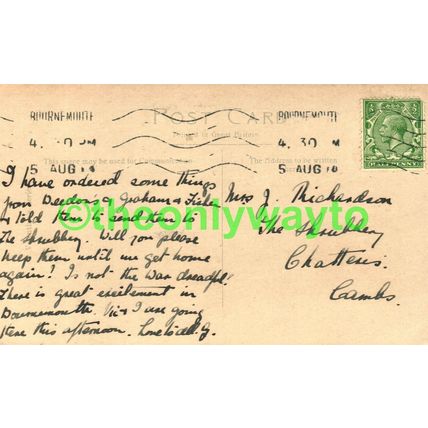 POST CARD
BOURNEMOUTH
4. 30 PM
5 AUG 14
BOURNEMOUTH
4. 30
5 AUG 14
Printed in Great Britain
This space may be used for Communication
The Address to be written
HALFPENNY
©theonlywayto
I have ordered some things
from & Graham &
& told them to send them to
The Shrubbery. Will you please
keep them until we get home
again? Is not the war dreadful?
There is great excitement in
Bournemouth. Vi & I are going
there this afternoon. Love to all. J.
Mrs J. Richardson
The Shrubbery
Chatteris.
Cambs.